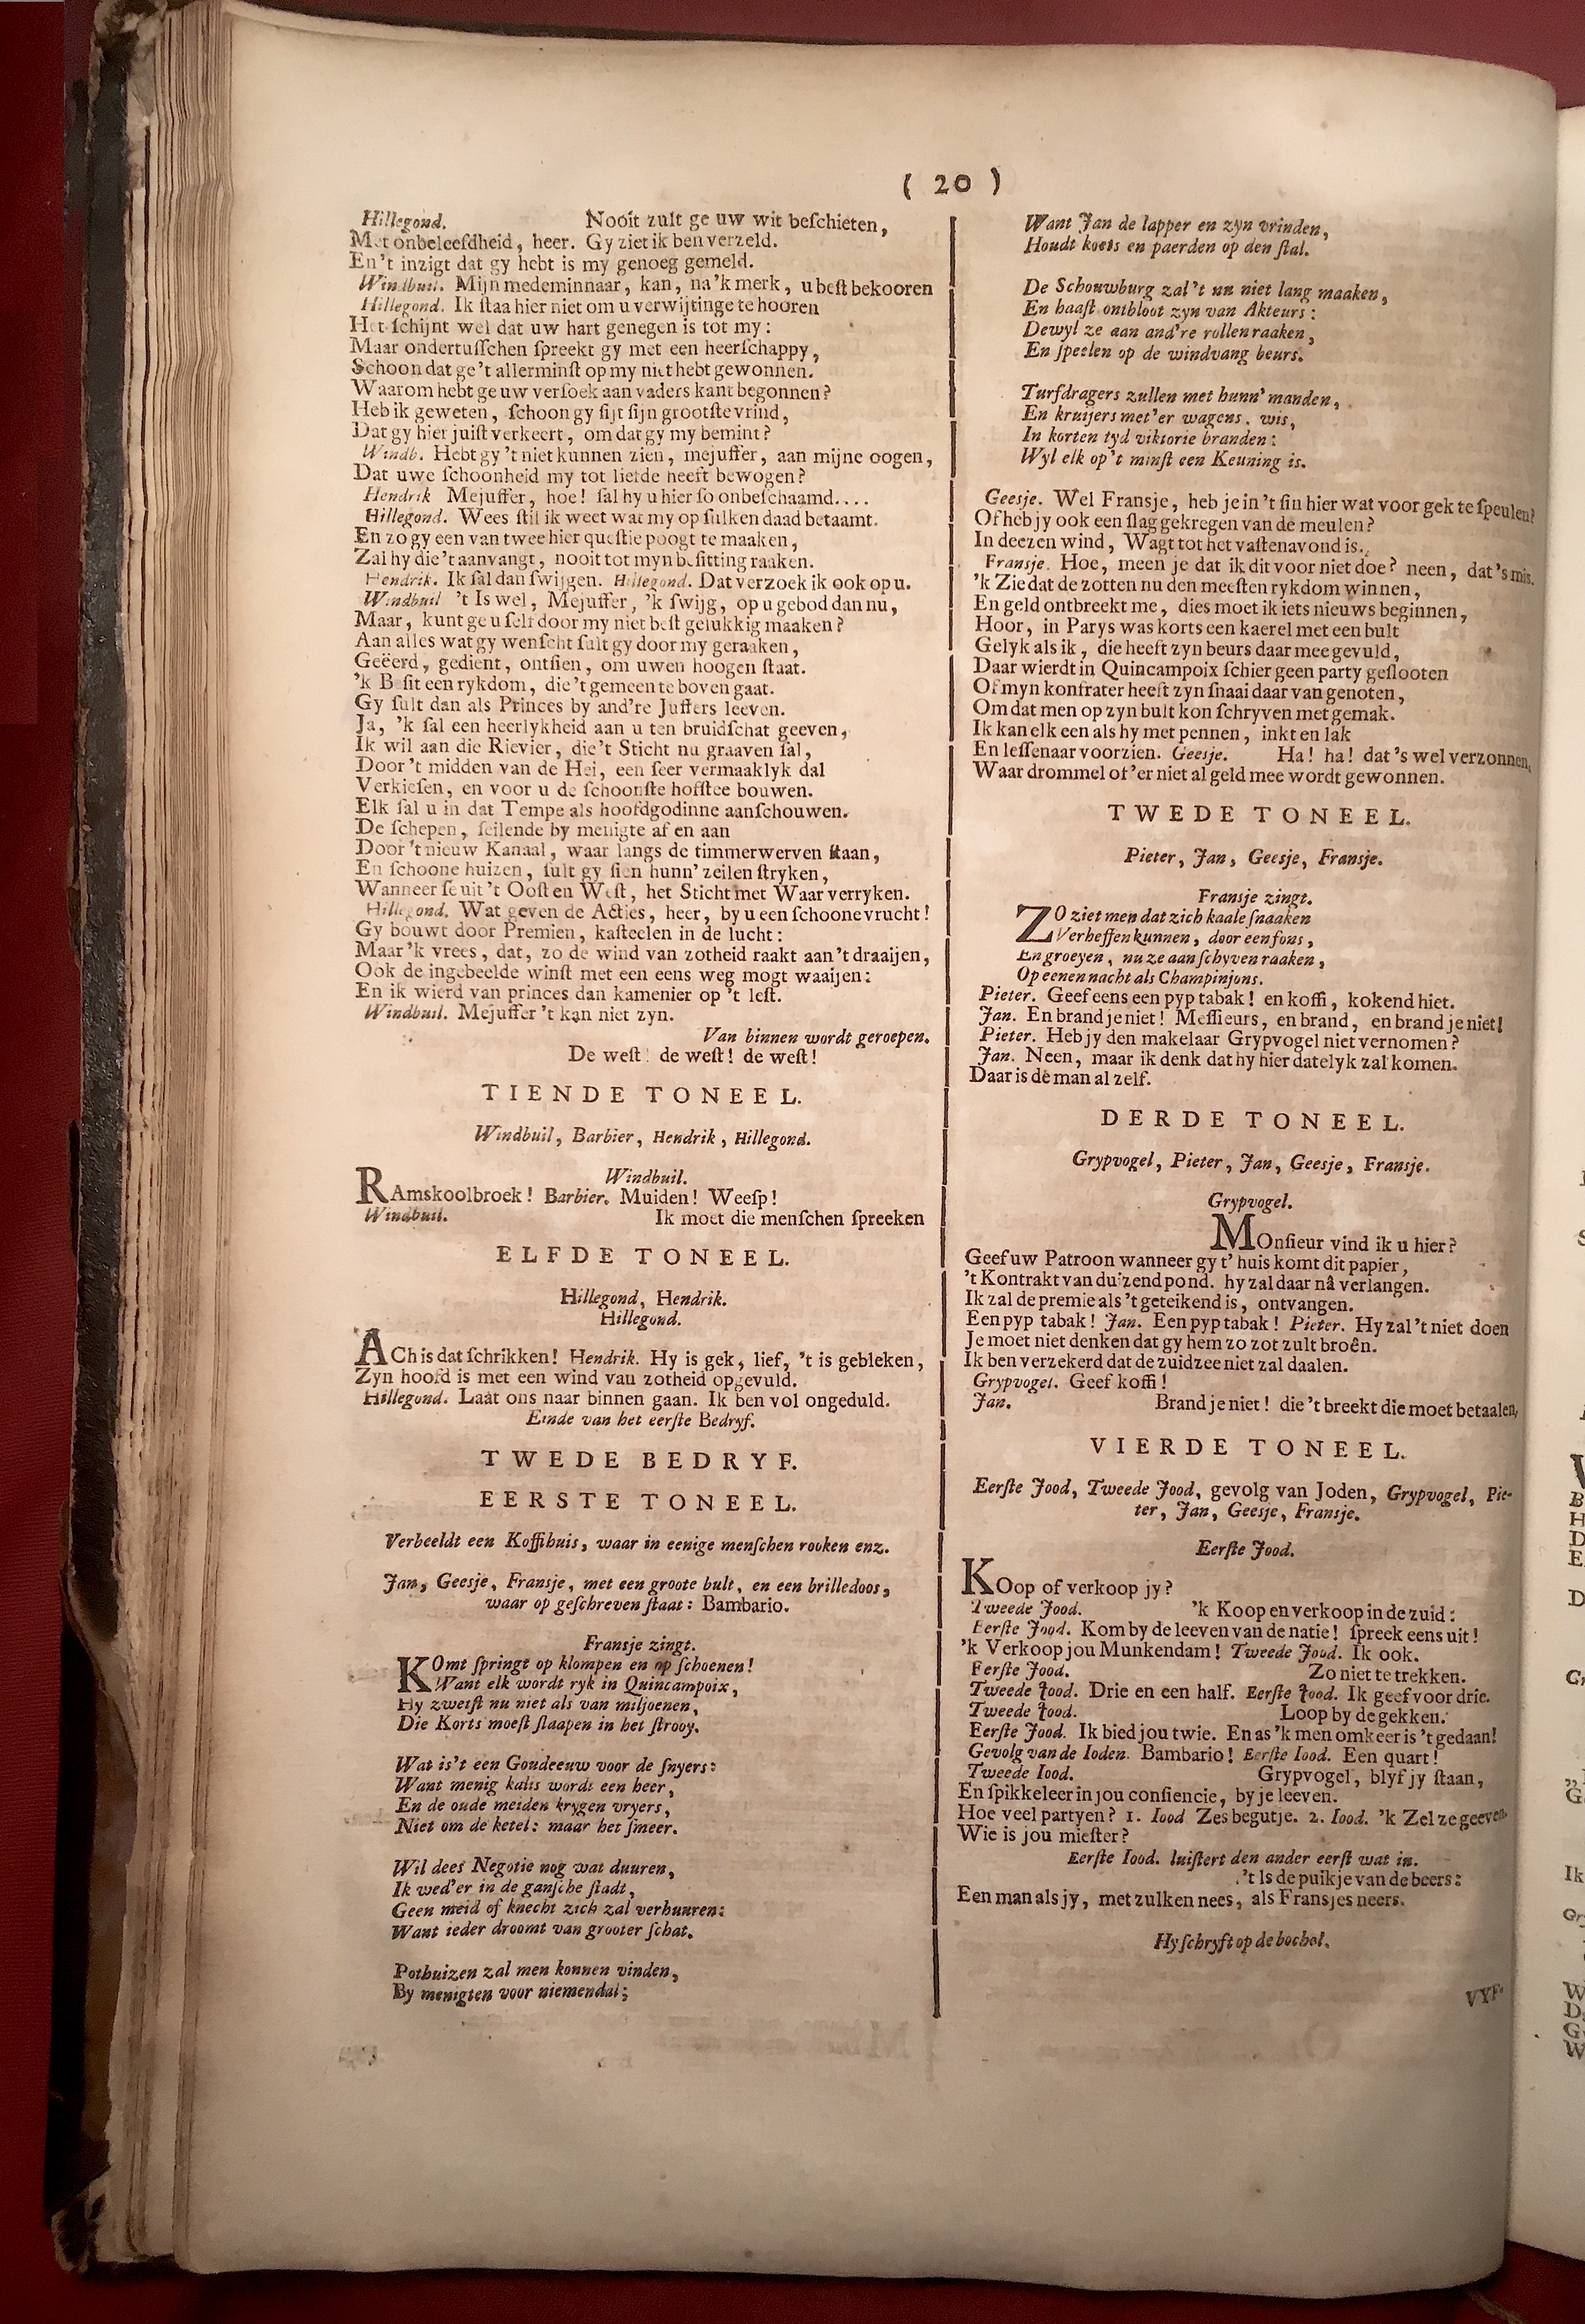 ( 20 )
Hillegond. Nooit zult ge uw wit beſchieten,
Met onbeleefdheid, heer. Gy ziet ik ben verzeld.
En 't inzigt dat gy hebt is my genoeg gemeld.
Windbuil. Mijn medeminnaar, kan, na 'k merk, u beſt bekooren
Hillegond. Ik ſtaa hier niet om u verwijtinge te hooren
Het ſchijnt wel dat uw hart genegen is tot my:
Maar ondertuſſchen ſpreekt gy met een heerſchappy,
Schoon dat ge 't allerminſt op my niet hebt gewonnen.
Waarom hebt ge uw verſoek aan vaders kant begonnen?
Heb ik geweten, ſchoon gy ſijt ſijn grootſte vrind,
Dat gy hier juiſt verkeert, om dat gy my bemint?
Windb. Hebt gy 't niet kunnen zien, mejuffer, aan mijne oogen,
Dat uwe ſchoonheid my tot liefde heeft bewogen?
Hendrik Mejuffer, hoe! ſal hy u hier ſo onbeſchaamd....
Hillegond. Wees ſtil ik weet wat my op ſulken daad betaamt.
En zo gy een van twee hier queſtie poogt te maaken,
Zal hy die 't aanvangt, nooit tot myn beſitting raaken.
Hendrik. Ik ſal dan ſwijgen. Hillegond. Dat verzoek ik ook op u.
Windbuil 't Is wel, Mejuffer, 'k ſwijg, op u gebod dan nu,
Maar, kunt ge u ſelf door my niet beſt gelukkig maaken?
Aan alles wat gy wenſcht ſult gy door my geraaken,
Geëerd, gedient, ontſien, om uwen hoogen ſtaat.
'k Beſit een rykdom, die 't gemeente boven gaat.
Gy ſult dan als Princes by and're Juffers leeven.
Ja, 'k ſal een heerlykheid aan u ten bruidſchat geeven,
Ik wil aan die Rievier, die 't Sticht nu graaven ſal,
Door 't midden van de Hei, een ſeer vermaaklyk dal
Verkieſen, en voor u de ſchoonſte hofſtee bouwen.
Elk ſal u in dat Tempe als hoofdgodinne aanſchouwen.
De ſchepen, ſeilende by menigte af en aan
Door 't nieuw Kanaal, waar langs de timmerwerven ſtaan,
En ſchoone huizen, ſult gy ſien hunn' zeilen ſtryken,
Wanneer ſe uit 't Ooſt en Weſt, het Sticht met Waar verryken.
Hillegond. Wat geven de Acties, heer, by u een ſchoone vrucht!
Gy bouwt door Premien, kaſteelen in de lucht:
Maar 'k vrees, dat, zo de wind van zotheid raakt aan 't draaijen,
Ook de ingebeelde winſt met een eens weg mogt waaijen:
En ik wierd van princes dan kamenier op 't leſt.
Windbuil. Mejuffer 't kan niet zyn.
Van binnen wordt geroepen.
De weſt! de weſt! de weſt!
TIENDE TONEEL.
Windbuil, Barbier, Hendrik, Hillegond.
Windbuil.
RAmskoolbroek! Barbier. Muiden! Weeſp!
Windbuil. Ik moet die menſchen ſpreeken
ELFDE TONEEL.
Hillegond, Hendrik.
Hillegond.
ACh is dat ſchrikken! Hendrik. Hy is gek, lief, 't is gebleken,
Zyn hoofd is met een wind vau zotheid opgevuld.
Hillegond. Laat ons naar binnen gaan. Ik ben vol ongeduld.
Einde van het eerſte Bedryf.
TWEDE BEDRYF.
EERSTE TONEEL.
Verbeeldt een Koffihuis, waar in eenige menſchen rooken enz.
Jan, Geesje, Fransje, met een groote bult, en een brilledoos,
waar op geſchreven ſtaat: Bambario.
Fransje zingt.
KOmt ſpringt op klompen en op ſchoenen!
Want elk wordt ryk in Quincampoix,
Hy zweiſt nu niet als van miljoenen,
Die Korts moeſt ſlaapen in het ſtrooy.
Wat is't een Goudeeuw voor de ſnyers:
Want menig kalis wordt een heer,
En de oude meiden krygen vryers,
Niet om de ketel: maar het ſmeer.
Wil dees Negotie nog wat duuren,
Ik wed'er in de ganſche ſtadt,
Geen meid of knecht zich zal verhuuren:
Want ieder droomt van grooter ſchat.
Pothuizen zal men konnen vinden,
By menigten voor niemendal;
Want Jan de lapper en zyn vrinden,
Houdt koets en paerden op den ſtal.
De Schouwburg zal't nu niet lang maaken,
En haaſt ontbloot zyn van Akteurs:
Dewyl ze aan and're rollen raaken,
En ſpeelen op de windvang beurs.
Turfdragers zullen met hunn' manden,
En kruijers met'er wagens, wis,
In korten tyd viktorie branden:
Wyl elk op't minſt een Keuning is.
Geesje. Wel Fransje, heb je in 't ſin hier wat voor gek te ſpeulen?
Of heb jy ook een ſlag gekregen van de meulen?
In deezen wind, Wagt tot het vaſtenavond is.
Fransje. Hoe, meen je dat ik dit voor niet doe? neen, dat's mis.
'k Zie dat de zotten nu den meeſten rykdom winnen,
En geld ontbreekt me, dies moet ik iets nieuws beginnen,
Hoor, in Parys was korts een kaerel met een bult
Gelyk als ik, die heeft zyn beurs daar mee gevuld,
Daar wierdt in Quincampoix ſchier geen party geſlooten
Of myn konfrater heeft zyn ſnaai daar van genoten,
Om dat men op zyn bult kon ſchryven met gemak.
Ik kan elk een als hy met pennen, inkt en lak
En leſſenaar voorzien. Geesje. Ha! ha! dat's wel verzonnen,
Waar drommel of'er niet al geld mee wordt gewonnen.
TWEDE TONEEL.
Pieter, Jan, Geesje, Fransje.
Fransje zingt.
ZO ziet men dat zich kaale ſnaaken
Verheffen kunnen, door een fons,
En groeyen, nu ze aan ſchyven raaken,
Op eenen nacht als Champinjons.
Pieter. Geef eens een pyp tabak! en koffi, kokend hiet.
Jan. En brand je niet! Meſſieurs, en brand, en brand je niet!
Pieter. Heb jy den makelaar Grypvogel niet vernomen?
Jan. Neen, maar ik denk dat hy hier datelyk zal komen.
Daar is de man al zelf.
DERDE TONEEL.
Grypvogel, Pieter, Jan, Geesje, Fransje.
Grypvogel.
MOnſieur vind ik u hier?
Geef uw Patroon wanneer gy t' huis komt dit papier,
't Kontrakt van duizend pond. hy zal daar nâ verlangen.
Ik zal de premie als 't geteikend is, ontvangen.
Een pyp tabak! Jan. Een pyp tabak! Pieter. Hy zal 't niet doen
Je moet niet denken dat gy hem zo zot zult broên.
Ik ben verzekerd dat de zuidzee niet zal daalen.
Grypvogel. Geef koffi!
Jan. Brand je niet! die 't breekt die moet betaalen,
VIERDE TONEEL.
Eerſte Jood, Tweede Jood, gevolg van Joden, Grypvogel, Pie-
ter, Jan, Geesje, Fransje.
Eerſte Jood.
KOop of verkoop jy?
Tweede Jood. 'k Koop en verkoop in de zuid:
Eerſte Jood. Kom by de leeven van de natie! ſpreek eens uit!
'k Verkoop jou Munkendam! Tweede Jood. Ik ook.
Eerſte Jood. Zo niet te trekken.
Tweede Jood. Drie en een half. Eerſte Jood. Ik geef voor drie.
Tweede Jood. Loop by de gekken.
Eerſte Jood. Ik bied jou twie. En as 'k men omkeer is 't gedaan!
Gevolg van de Ioden. Bambario! Eerſte Iood. Een quart!
Tweede Iood. Grypvogel, blyf jy ſtaan,
En ſpikkeleer in jou conſiencie, by je leeven.
Hoe veel partyen? 1. Iood Zes begutje. 2. Iood. 'k Zel ze geeven.
Wie is jou mieſter?
Eerſte Iood. luiſtert den ander eerſt wat in.
't Is de puikje van de beers:
Een man als jy, met zulken nees, als Fransjes neers.
Hy ſchryft op de bochel.
VYF-